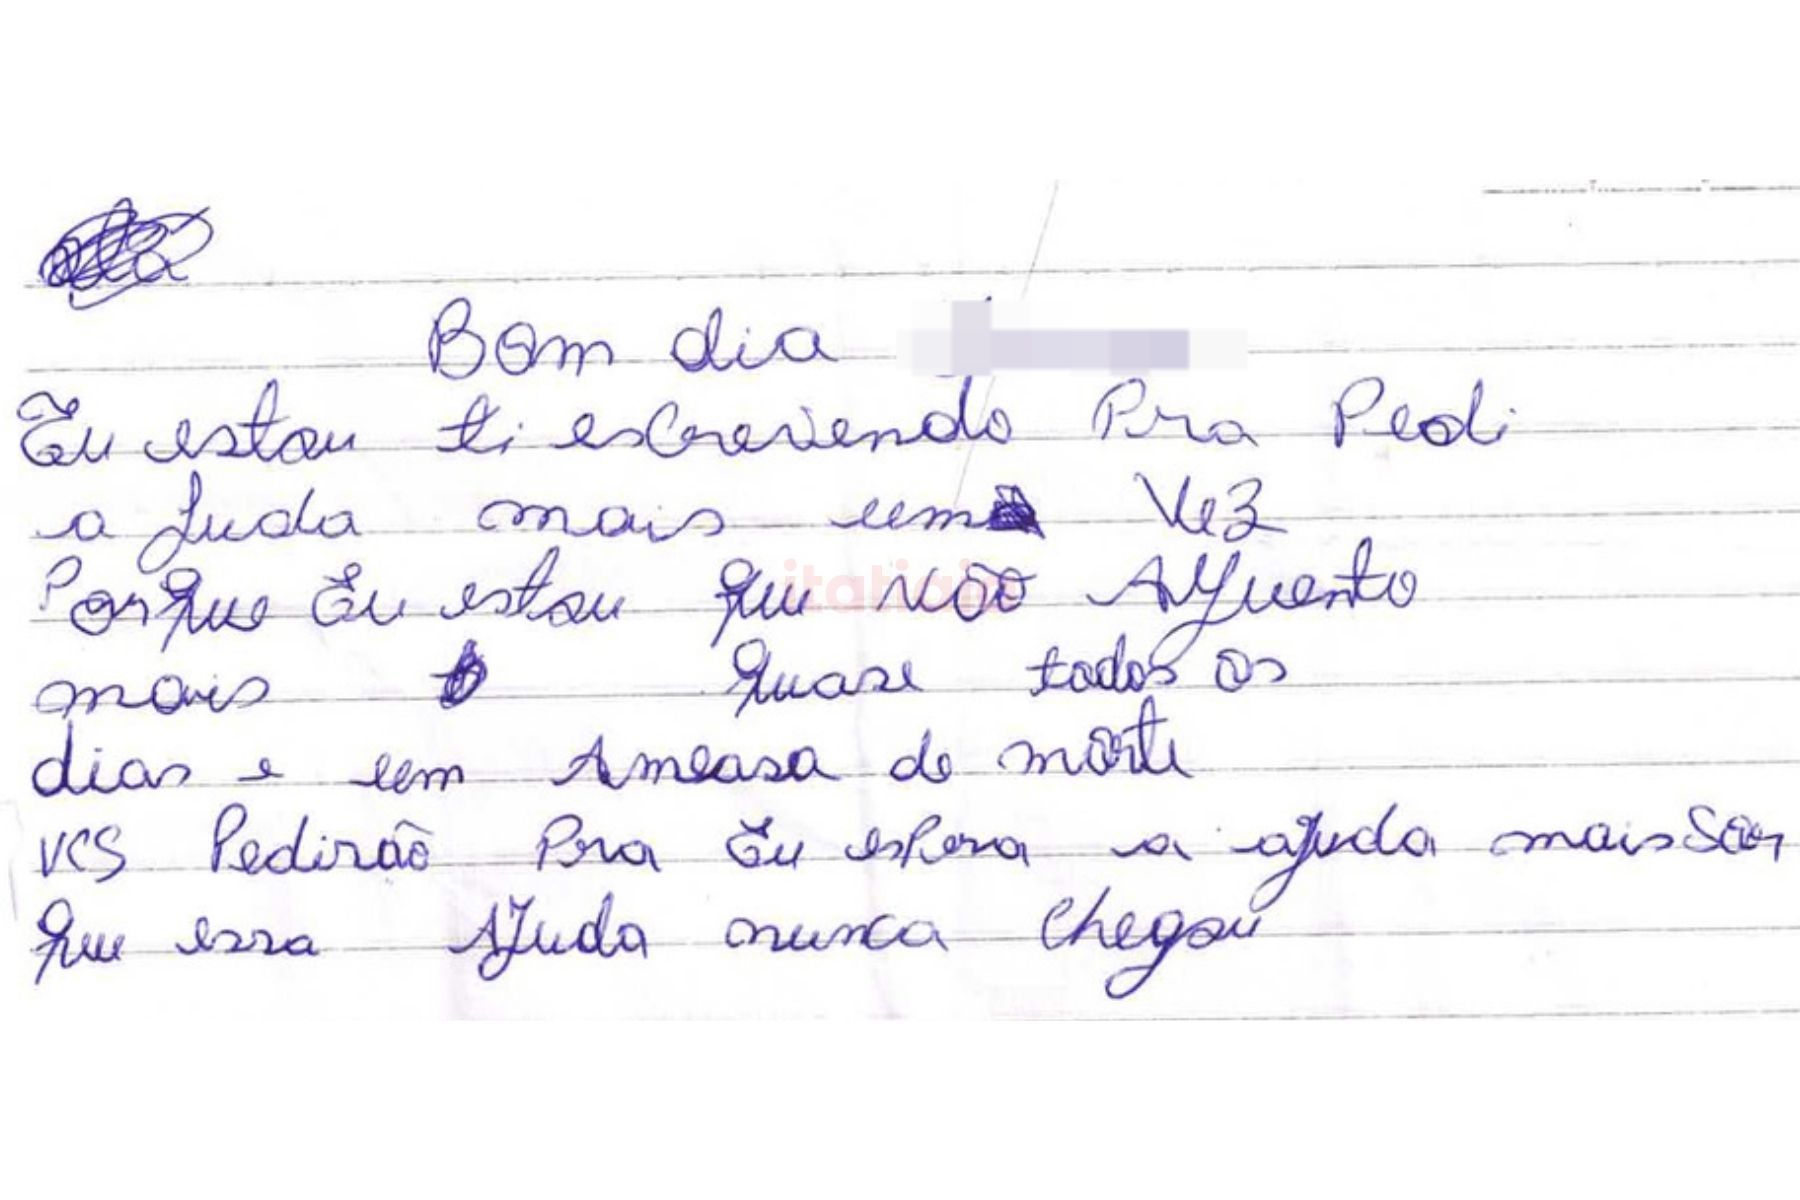 Bom dia
Eu estou ti escrevendo Pra Pedi
a Juda mais um Vez
Porque Eu estou que NÃO AGuento
mais quase todos os
dias e um Ameasa de morte
VCS Pedirão Pra Eu espera a ajuda mais Sor
que essa AJuda nunca chegou
itatiaia